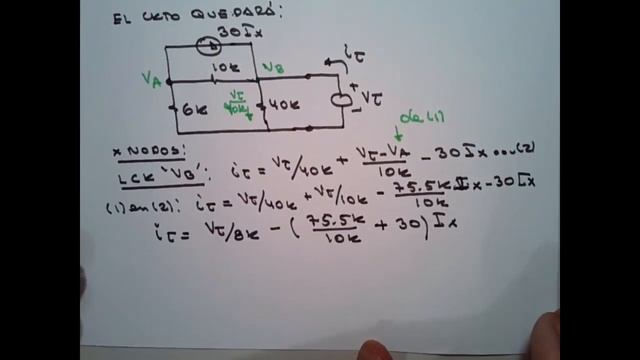 EL CKTO QUEDARÁ:
30Ix
iτ
10k
VA
VB
Vτ/40k
6k
40k
+
Vτ
-
de (1)
x NODOS:
LCK "VB": iτ = Vτ/40k + (Vτ-VA)/10k - 30Ix ...(2)
(1) en (2): iτ = Vτ/40k + Vτ/10k - 75.5k/10k Ix - 30Ix
iτ = Vτ/8k - (75.5k/10k + 30) Ix